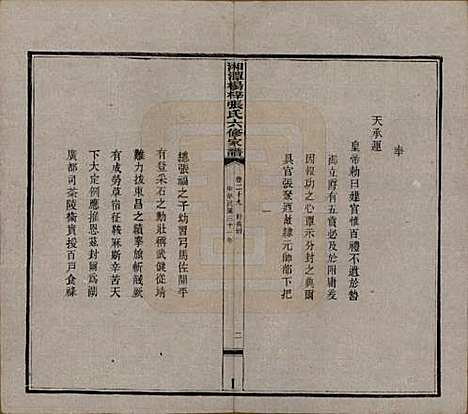 奉
天承運
皇帝勅曰建官惟百禮不遺於
功立府有五賞必及於附庸爰
因報功之心覃示分封之典爾
具官張聚酒故隸元帥都下把
湘潭楊梓張氏六修家譜
卷二十九
中華民國三十一年
二
總張福之子幼習弓馬佐開平
有登采石之勳壯稱武健從靖
難力拔東昌之績搴旗斬賊厥
有成勞草宿征鞍麻斯辛苦天
下大定例應推恩茲封爾爲湖
廣都司茶陵衞實授百戶食祿